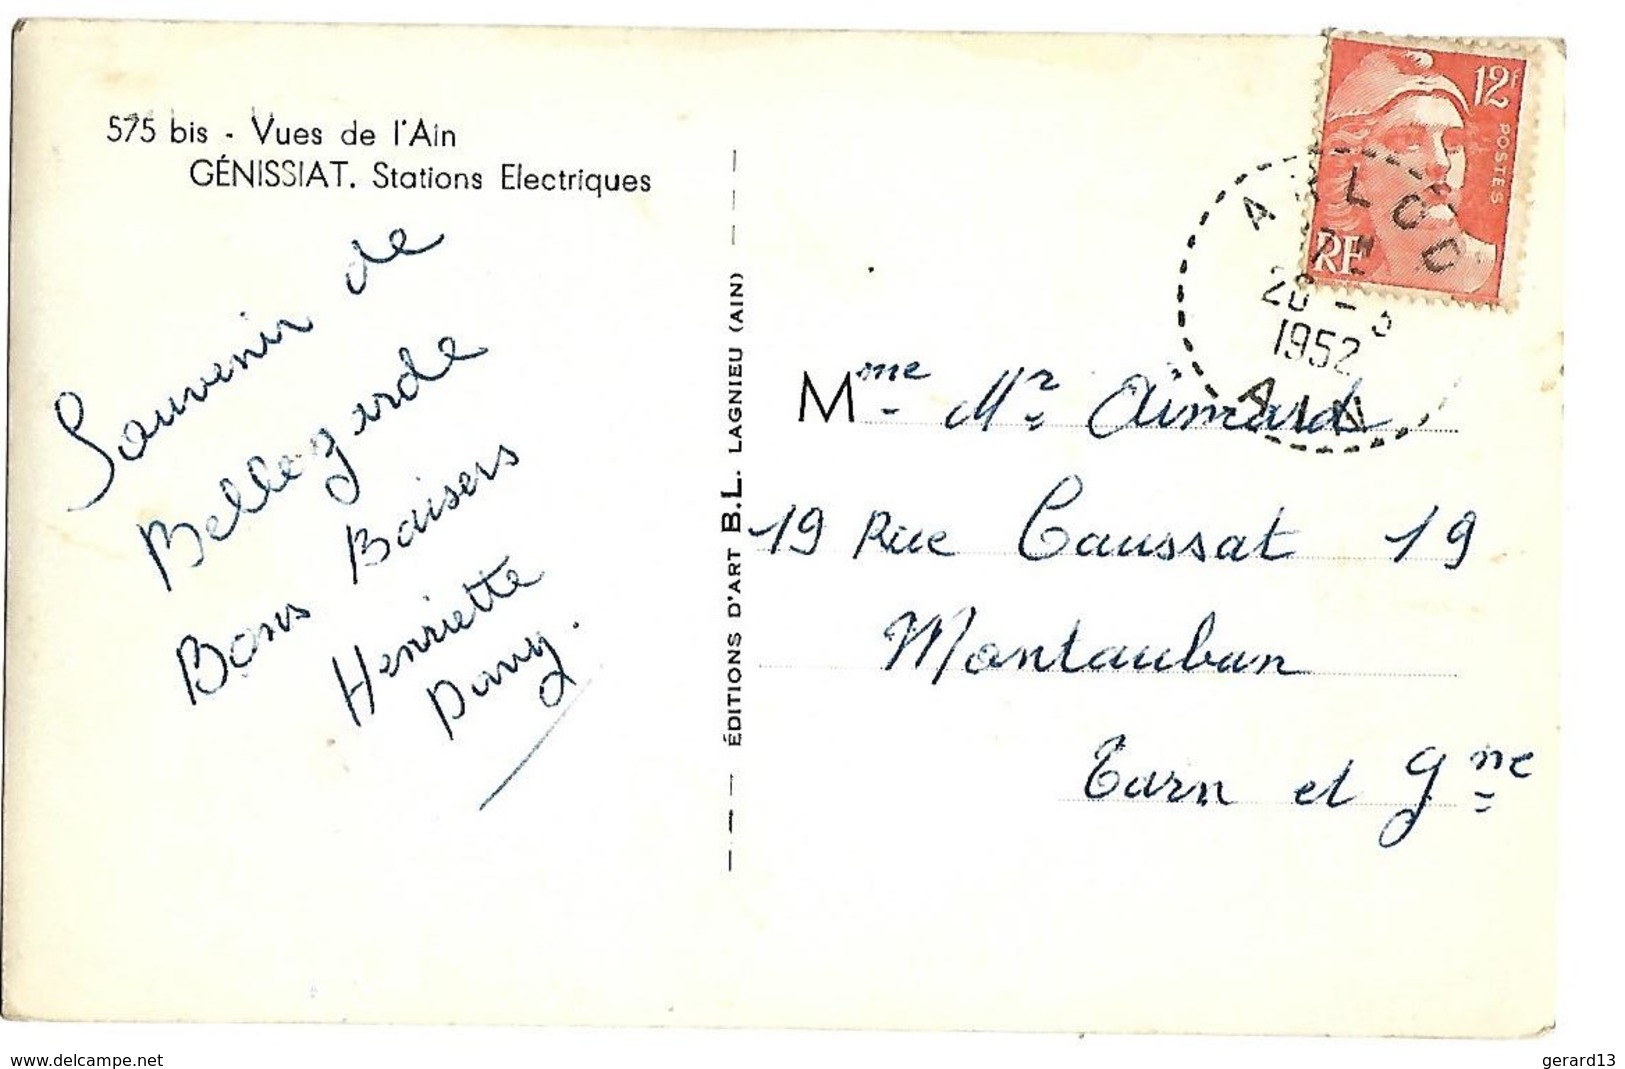 575 bis - Vues de l'Ain
GÉNISSIAT. Stations Electriques
Souvenir de
Bellegarde
Bons Baisers
Henriette
ÉDITIONS D'ART B.L. LAGNIEU (AIN)
12f
POSTES
RF
ARLOD
1952
AIN
Mme Mr Aimard
19 Rue Caussat 19
Montauban
Tarn et Gne
www.delcampe.net
gerard13